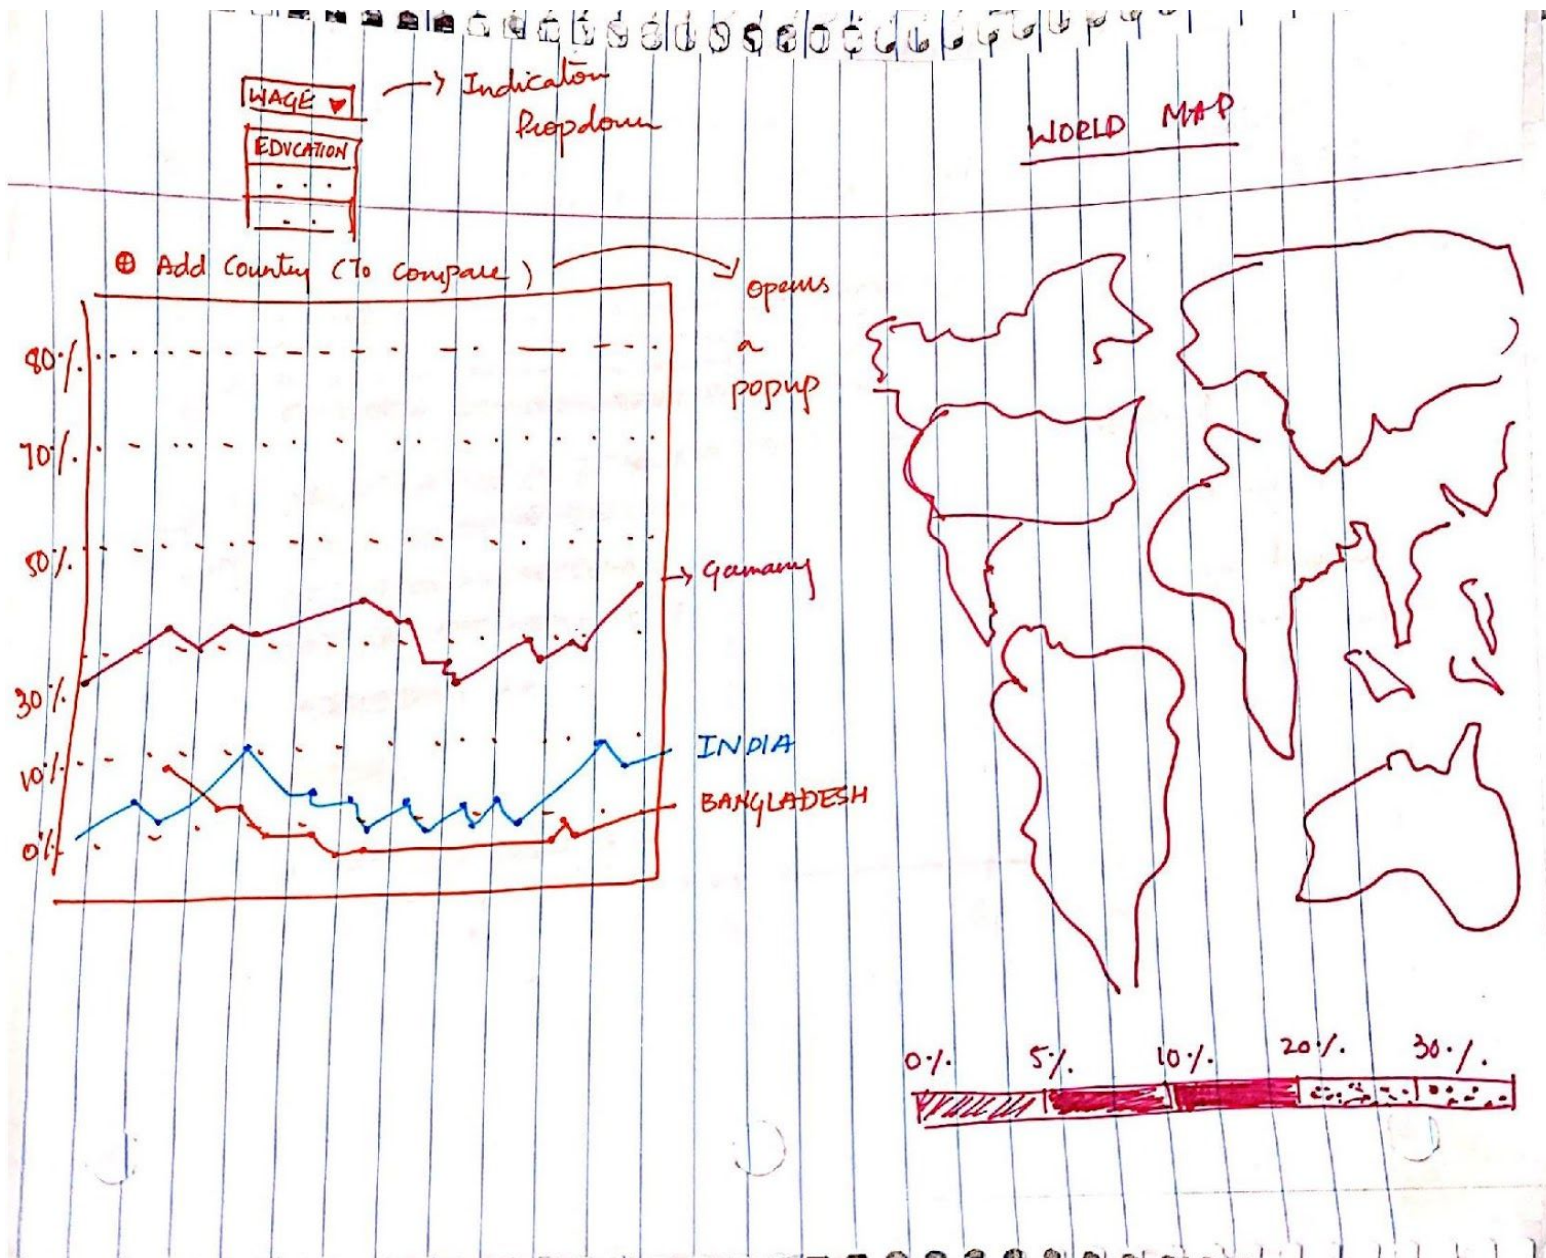 WAGE
→ Indicator
Dropdown
EDUCATION
. . .
. .
⊕ Add Country (To Compare)
opens
a
popup
80%
70%
50%
30%
10%
0%
→ Gemany
INDIA
BANGLADESH
WORLD MAP
0% 5% 10% 20% 30%